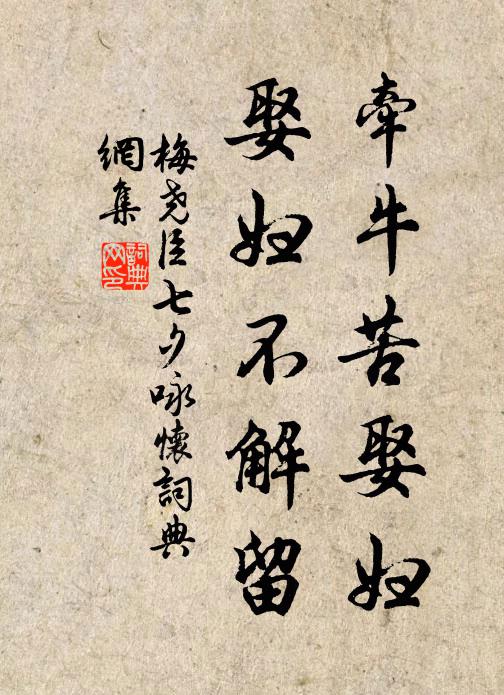 牽牛苦娶妇
娶妇不解留
梅尭臣七夕咏懷詞典
網集
詞典
网印